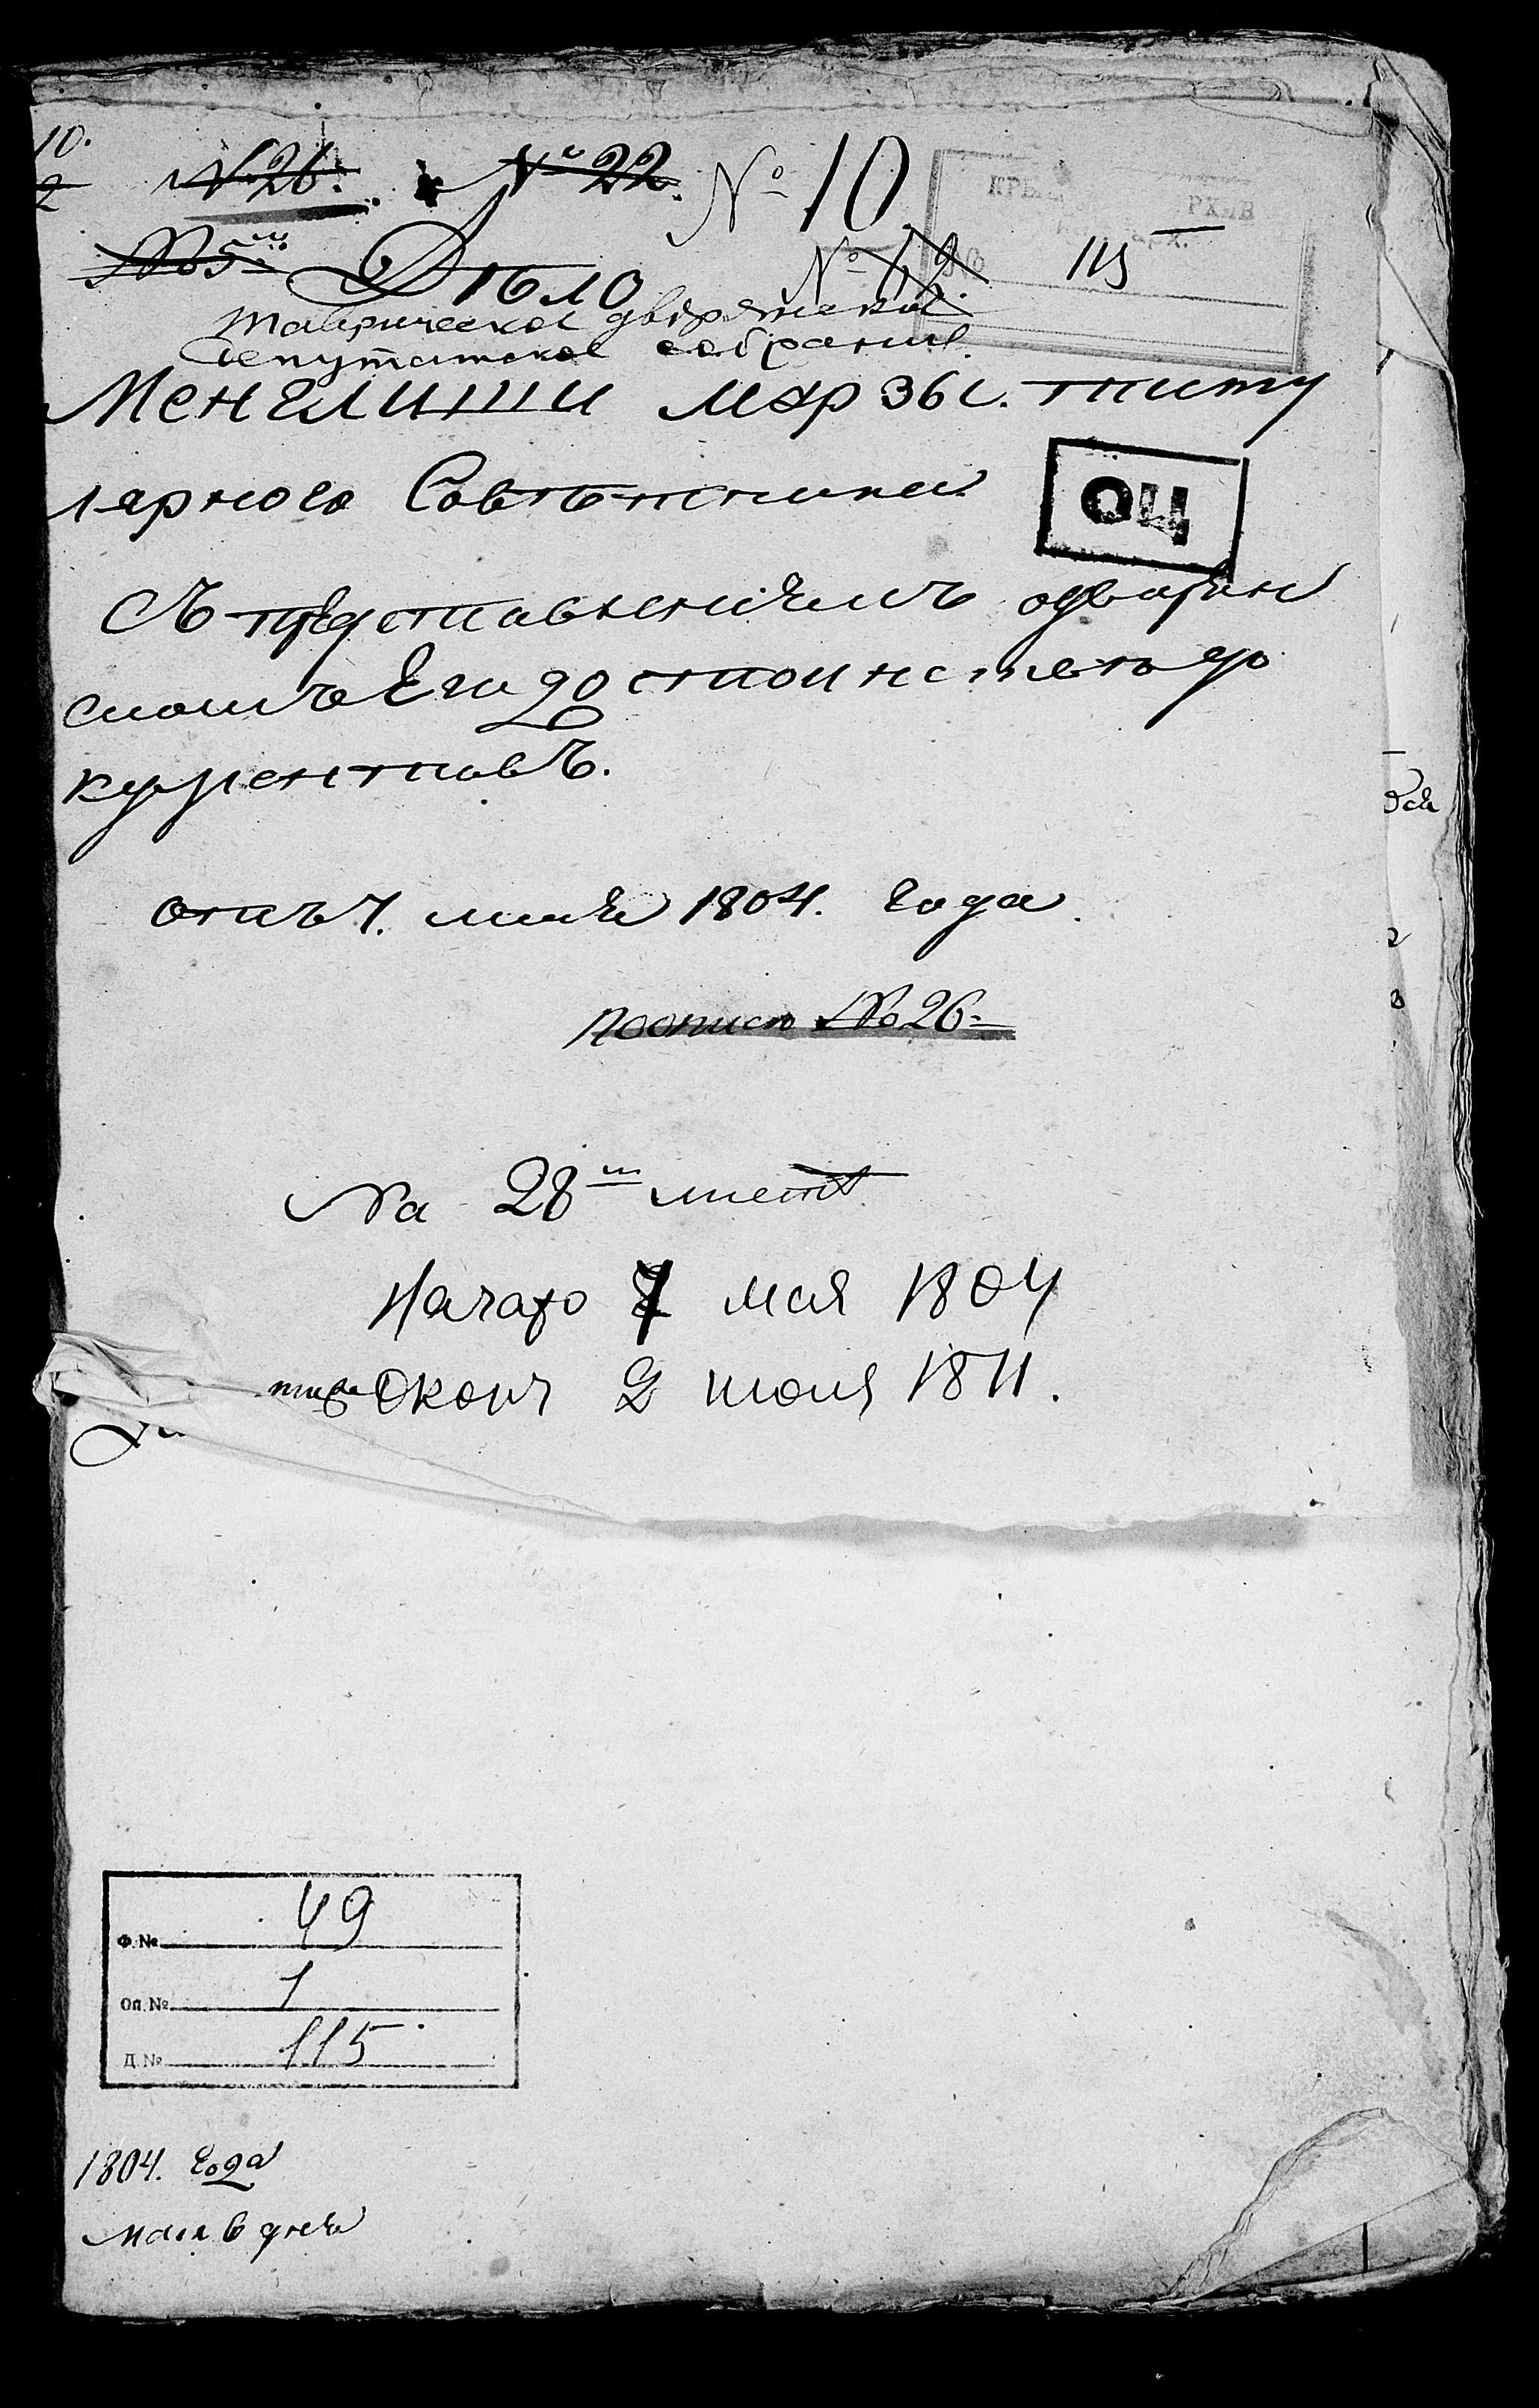 10.
2
№ 26.
№ 22.
№ 10
№ 5й
Дѣло
№ 12
115
Таврическое дворянское
депутатское собрание.
Менглиши Мюрзы. титу
лярного Совѣтника.
Съ представлениемъ одворян
скомъ Его достоинствѣ до
кументовъ.
ОЦ
отъ 7. мая 1804. года.
Поописи № 26.
На 28ми лист
Начато 7 мая 1804
Оконч 2 июня 1811.
Ф. № 49
Оп. № 1
Д. № 115
1804. года
мая 6 дня